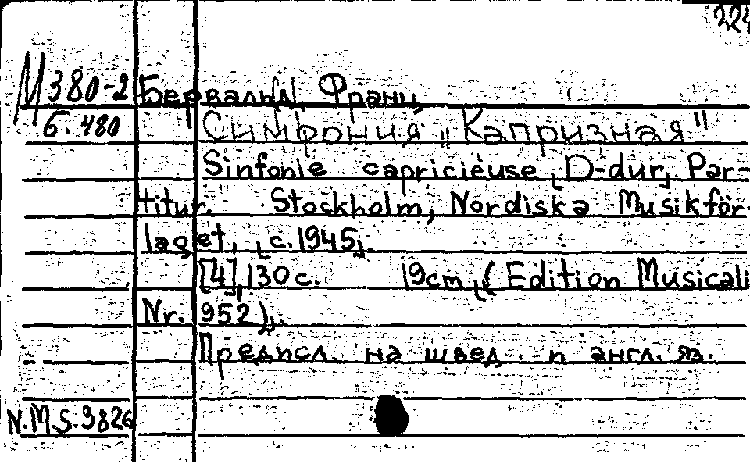 224
М 380-2 Бервальд, Франц
Б. 480 Симфония „Капризная"
Sinfonie capricieuse, D-dur, Par-
titur. Stockholm, Nordiska Musikför-
laget, [c. 1945].
[4], 130 с. 19cm, (Edition Musicali
Nr. 952).
Предисл. на швед. и англ. яз.
N.M.S. 9826